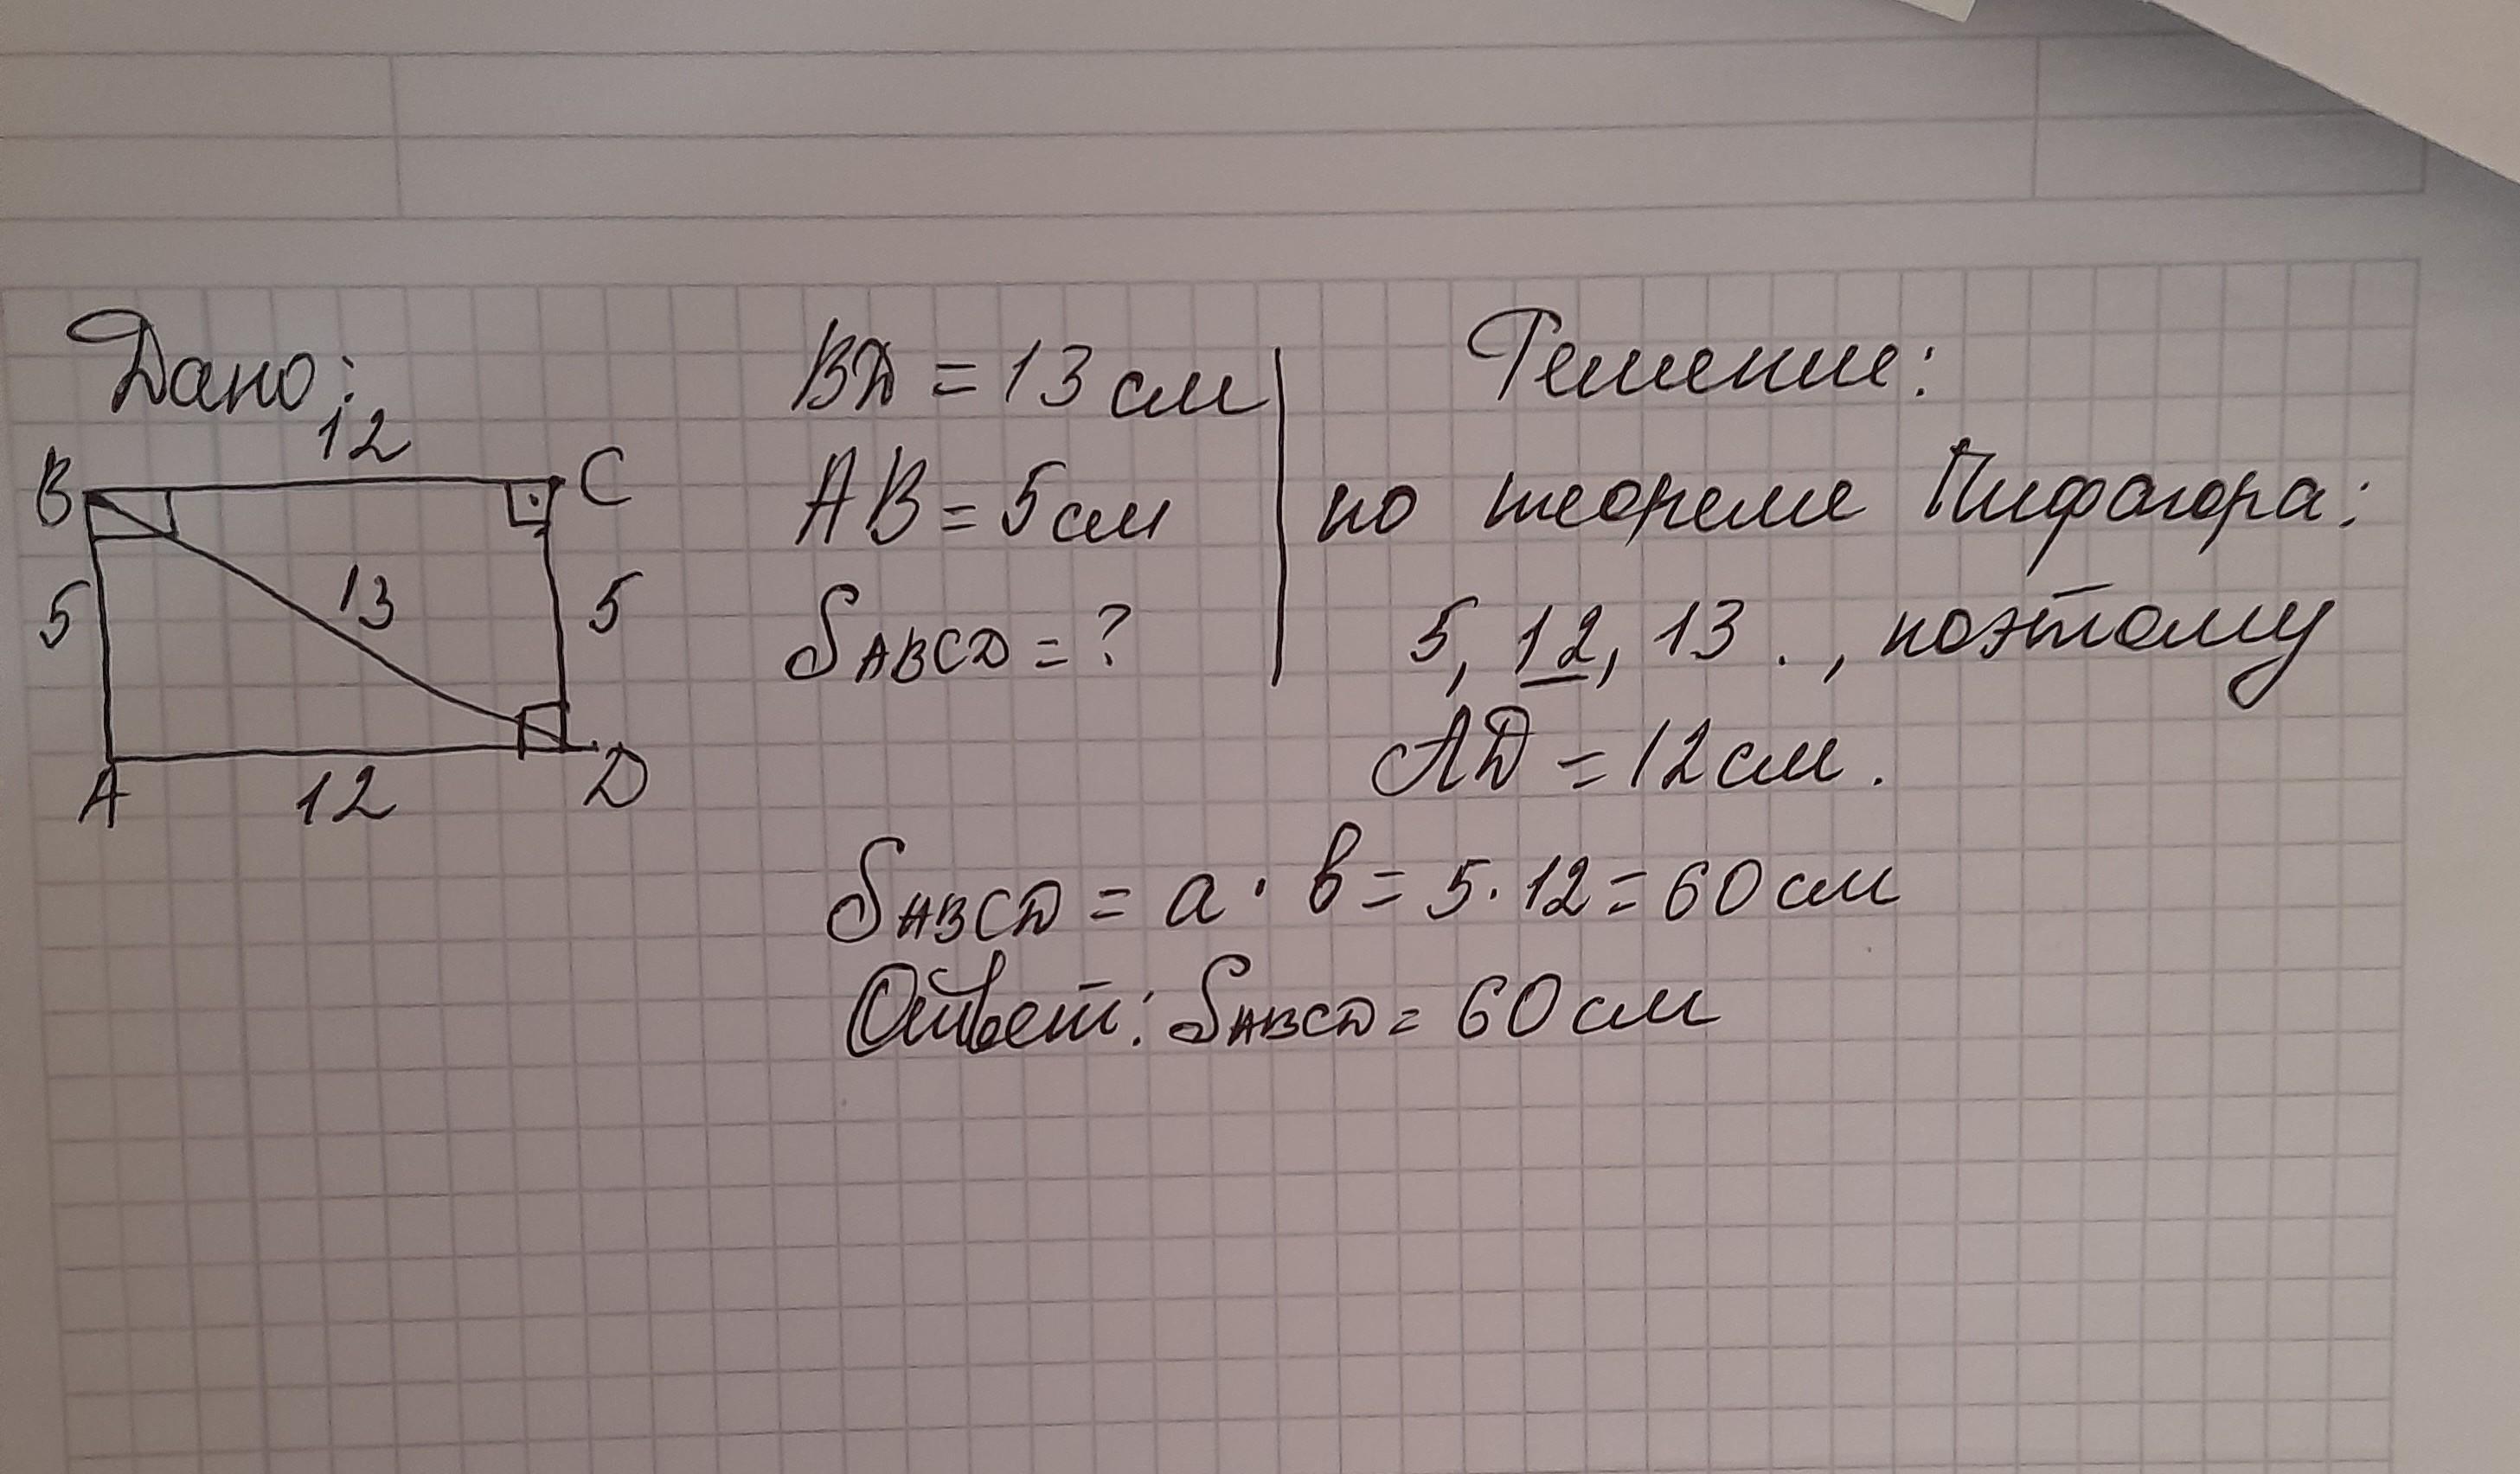 Дано:
12
B
C
5
13
5
A
12
D
BD = 13 см
AB = 5 см
SABCD = ?
Решение:
по теореме Пифагора:
5, 12, 13 . , поэтому
AD = 12 см .
SABCD = a · b = 5 · 12 = 60 см
Ответ: SABCD = 60 см